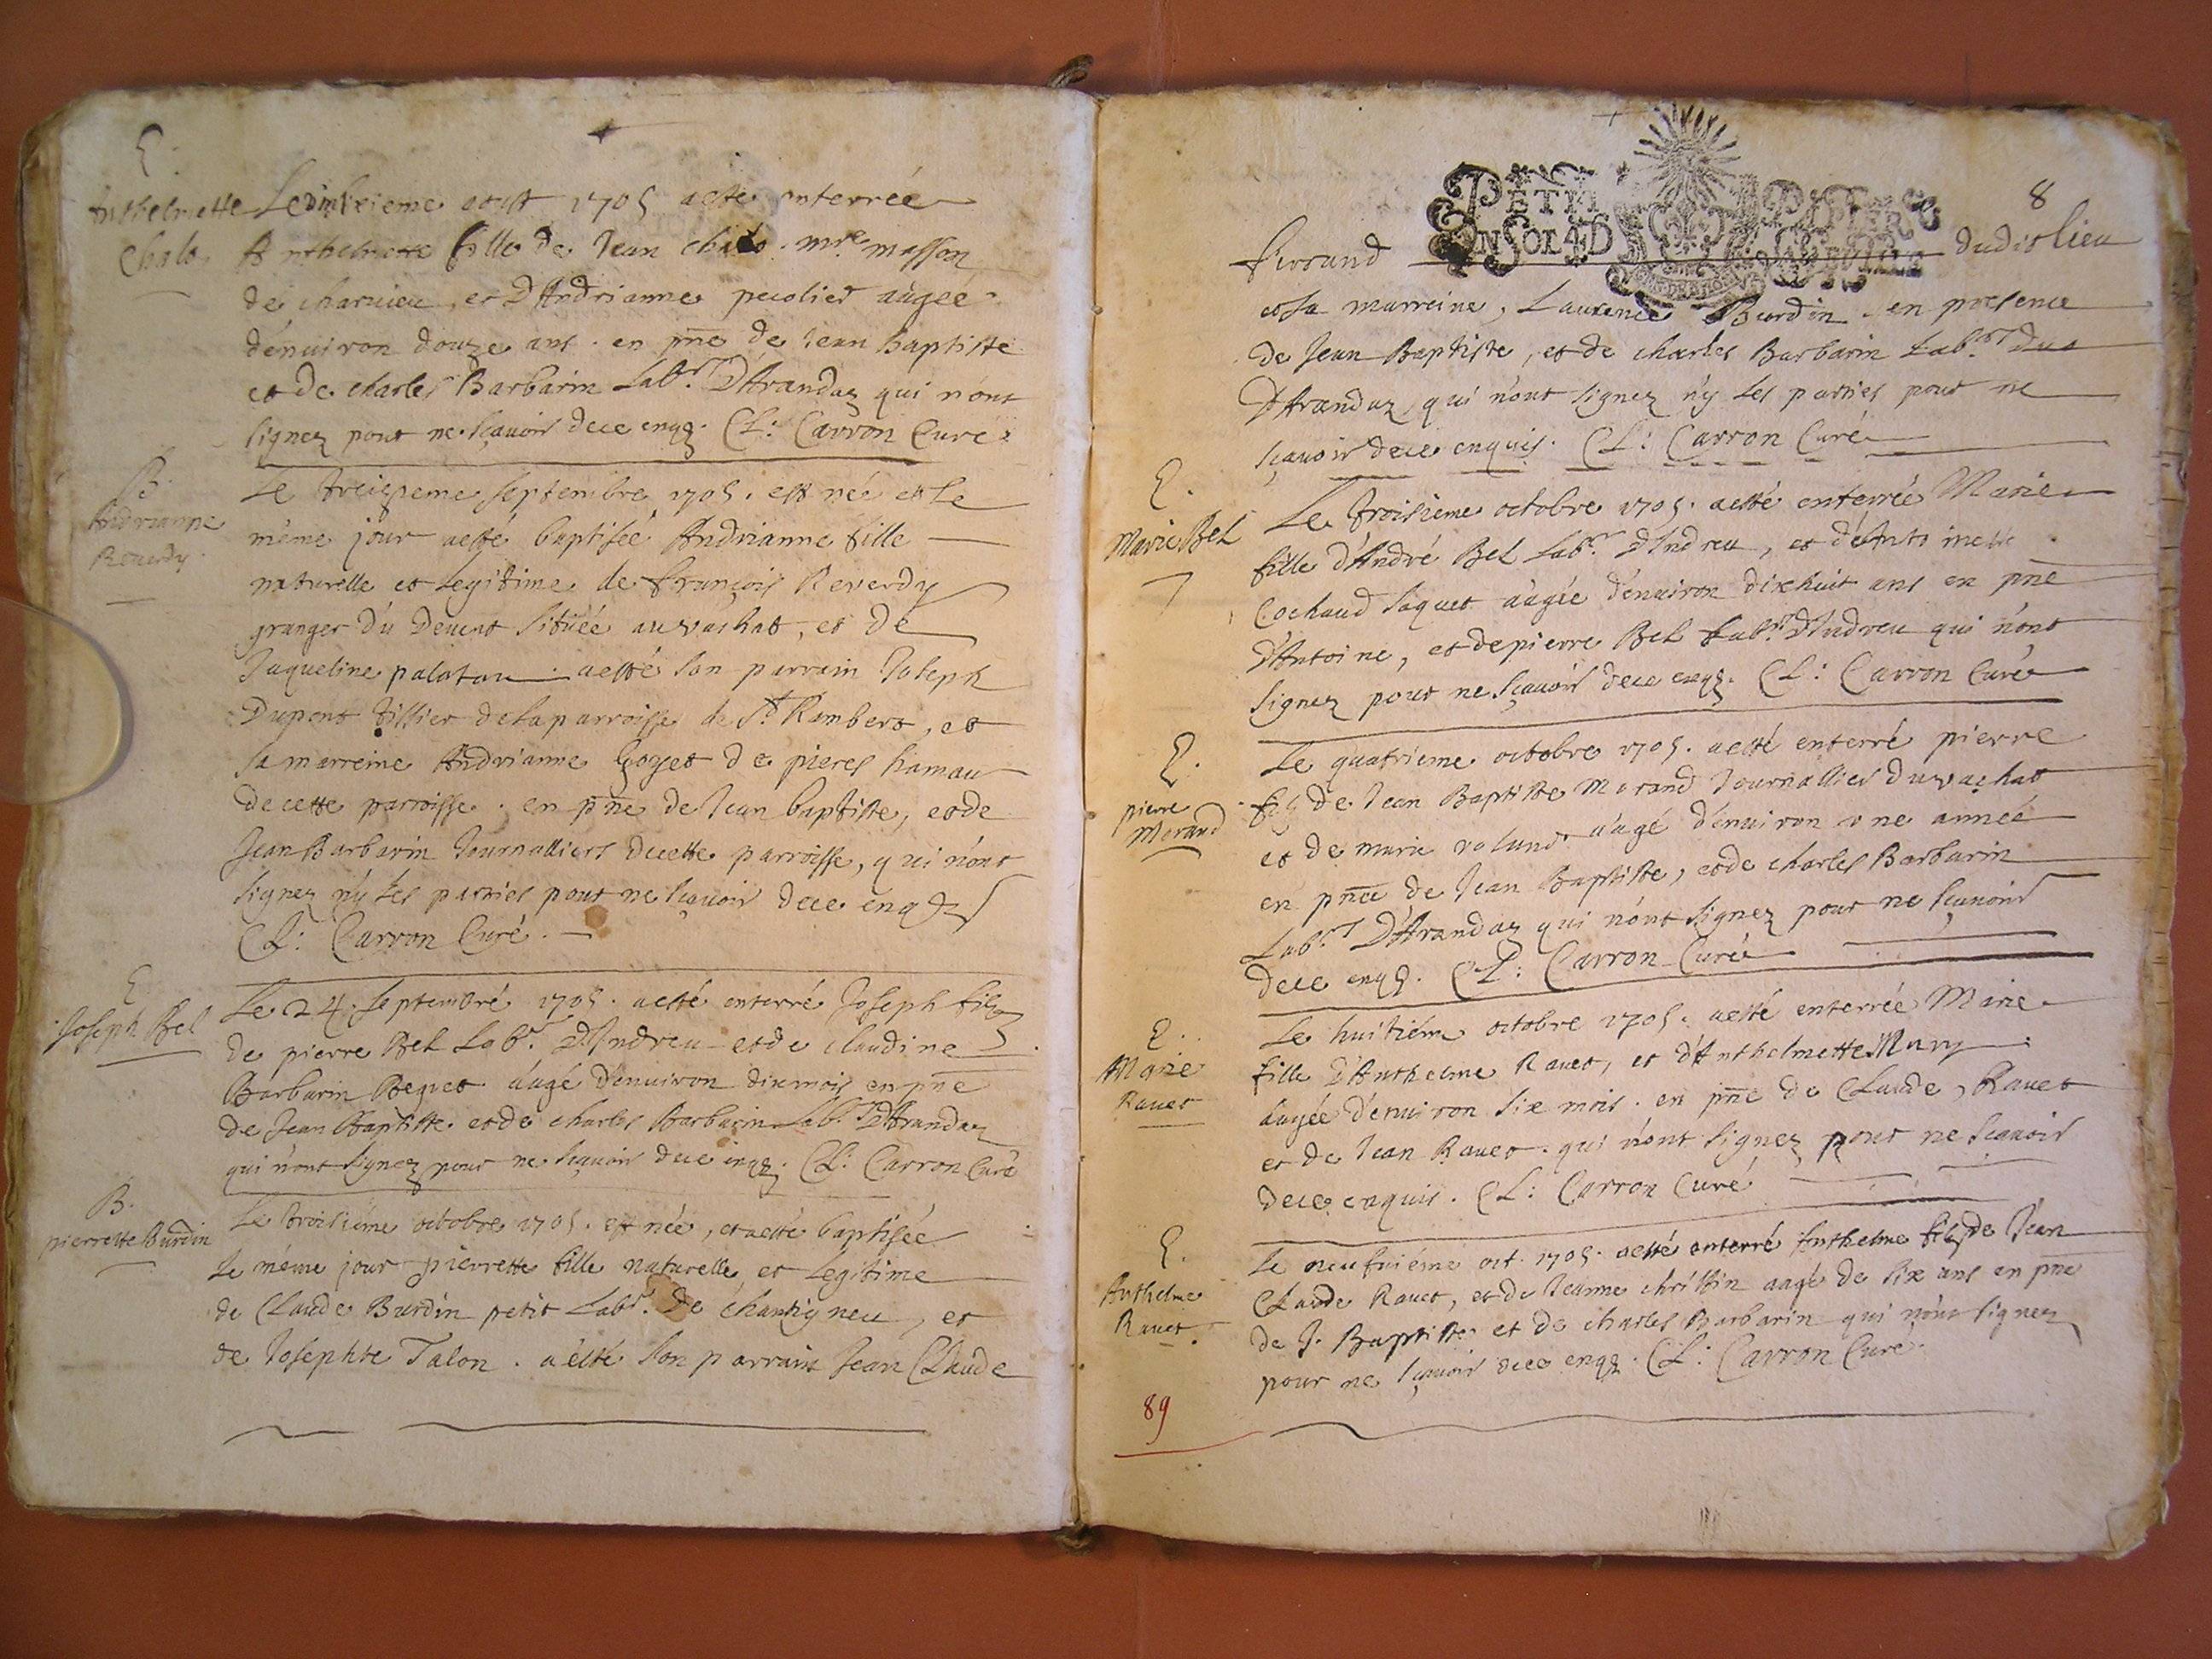 E.
Anthelmette
Chalo
Le      ieme aoust 1705 aesté enterrée
Anthelmette fille de Jean chalo mre masson
de charvieu, et D'Andrianne pecolier aûgée
d'énuiron douze ans. en pñe de Jean Baptiste
et de charles Barbarin Labr D'Arandaz qui n'ont
signez pour ne sçauoir dece enqs. CL: Carron Curé
B.
Andrianne
Reuerdy.
Le treizieme septembre 1705. est née et le
même jour aesté baptisée Andrianne fille
naturelle et legitime de françois Reverdy
granger du Deuent située au vachat, et de
Jaqueline palatan aesté son parrain Joseph
Dupont tissier de la parroisse de St Rambert, et
sa marreine Andrianne goyet de pieres hamau
de cette parroisse. en pñe de Jean baptiste, et de
Jean Barbarin Journalliers decette parroisse, qui n'ont
signez n'y les parties pour ne sçauoir dece enqs
CL: Carron Curé.
E.
Joseph Bel
Le 24 septembré 1705. aesté enterré Joseph fils
de pierre Bel Labr. D'Indrieu et de claudine
Barbarin Beguet aûgé d'enuiron dixmois en pñe
de Jean Baptiste et de charles Barbarin Labr. D'Arandaz
qui n'ont signez pour ne sçauoir dece enqs. CL: Carron Curé
B.
pierrette Burdin
Le troisiéme octobre 1705. est née, et aesté baptisée
le méme jour pierrette fille naturelle et legitime
de Claude Burdin petit Labr. de chantigneu, et
de Josephte Talon. a ésté son parrain Jean Claude
8
PETIT PAPIER
UN SOL 4 D
ferrand dudit lieu
et sa marreine, Laurence Burdin. en presence
de Jean Baptiste, et de charles Barbarin Labrs
D'Arandaz, qui n'ont signez n'y les parties pour ne
sçauoir dece enquis. CL: Carron Curé
E.
Marie Bel
Le troisieme octobre 1705. aesté enterrée Marie
fille d'André Bel Labr. D'Indrieu, et d'Antoinette
Cochaud Saquet aûgée d'enuiron dixhuit ans en pñe
D'Antoine, et depierre Bel Labrs D'Indrieu qui n'ont
signez pour ne sçauoir dece enqs. CL: Carron Curé
E.
pierre
Morand
Le quatrieme octobre 1705. aesté enterré pierre
fils de Jean Baptiste Morand Journallier du vachat
et de marie       aûgé d'enuiron vne année
en pñce de Jean Baptiste, et de charles Barbarin
Labrs D'Arandaz qui n'ont signez pour ne sçauoir
dece enqs. CL: Carron Curé
E.
Marie
Rauet
Le huitiéme octobre 1705. aesté enterrée Marie
fille D'Anthelme Rauet, et d'Anthelmette Mury
aûgée d'enuiron six mois. en pñe de Claude, Rauet
et de Jean Rauet. qui n'ont signez pour ne sçauoir
dece enquis. CL: Carron Curé
E.
Anthelme
Rauet.
Le neufuiéme oct. 1705. aesté enterré Anthelme fils de Jean
Claude Rauet, et de Jeanne christin aagé de six ans en pñe
de J. Baptiste et de charles Barbarin qui n'ont signez
pour ne sçauoir dece enqs. CL: Carron Curé.
89